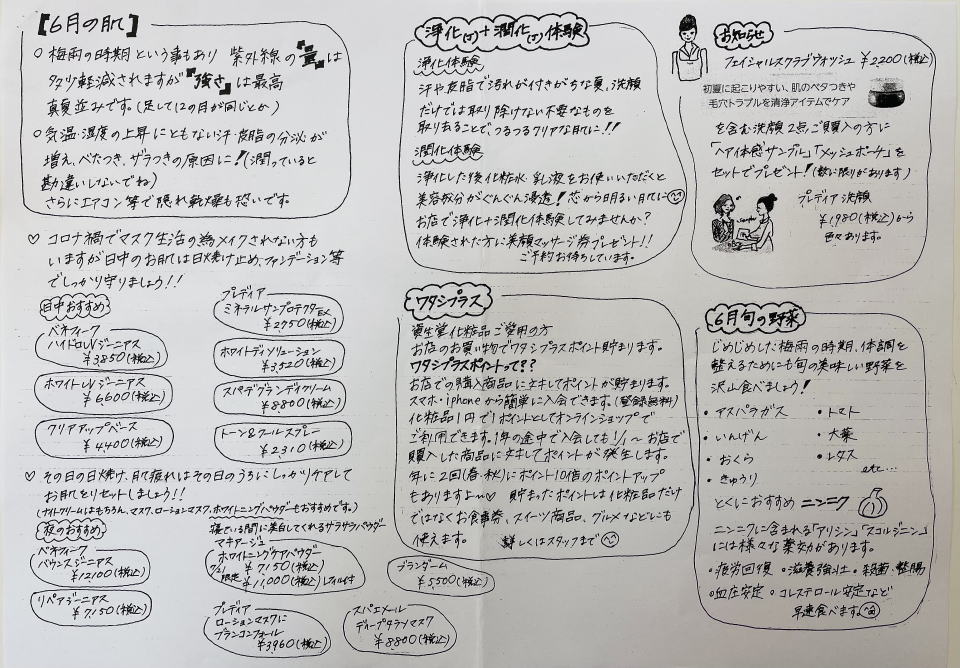 【6月の肌】
○梅雨の時期という事もあり 紫外線の『量』は
多少軽減されますが『強さ』は最高
真夏並みです。(足して12の月が同じとか)
○気温・湿度の上昇にともない汗・皮脂の分泌が
増え、べたつき、ザラつきの原因に!(潤っていると
勘違いしないでね)
さらにエアコン等で隠れ乾燥も恐いです。
♡ コロナ禍でマスク生活の為メイクされない方も
いますが日中のお肌は日焼け止め、ファンデーション等
でしっかり守りましょう!!
日中おすすめ
ベネフィーク
ハイドロUVジーニアス
¥3,850(税込)
ホワイトUVジーニアス
¥6,600(税込)
クリアアップベース
¥4,400(税込)
プレディア
ミネラルサンプロテクターEX
¥2750(税込)
ホワイトディソリューション
¥3,520(税込)
スパデグランデイクリーム
¥8800(税込)
トーン&クールスプレー
¥2310(税込)
♡ その日の日焼け、肌疲れはその日のうちにしっかりケアして
お肌をリセットしましょう!!
(ナイトクリームはもちろん、マスク、ローションマスク、ホワイトニングパウダーもおすすめです。)
夜のおすすめ
ベネフィーク
バウンスジーニアス
¥12100(税込)
リペアジーニアス
¥7,150(税込)
寝ている間に美白してくれるサラサラパウダー
マキアージュ
ホワイトニングケアパウダー
¥7150(税込)
7/21限定 ¥11,000(税込)レフィル付
ブランドーム
¥5,500(税込)
プレディア
ローションマスクに
ブランコンフォール
¥3960(税込)
スパエメール
ディープタラソマスク
¥8800(税込)
浄化(す)+潤化(す)体験
浄化体験
汗や皮脂で汚れが付きがちな夏、洗顔
だけでは取り除けない不要なものを
取り去ることで、つるつるクリアな肌に!!
潤化体験
浄化した後化粧水・乳液をお使いいただくと
美容成分がぐんぐん浸透!芯から明るい肌に
お店で浄化+潤化体験してみませんか?
体験された方に美顔マッサージ券プレゼント!!
ご予約お待ちしています。
ワタシプラス
資生堂化粧品ご愛用の方
お店のお買い物でワタシプラスポイント貯まります。
ワタシプラスポイントって??
お店での購入商品に対してポイントが貯まります。
スマホ・iphoneから簡単に入会できます。(登録無料)
化粧品1円で1ポイントとしてオンラインショップで
ご利用できます。1年の途中で入会しても1/1〜お店で
購入した商品に対してポイントが発生します。
年に2回(春・秋)にポイント10倍のポイントアップ
もありますよ〜♡ 貯まったポイントは化粧品だけ
ではなくお食事券、スイーツ商品、グルメなどにも
使えます。 詳しくはスタッフまで
お知らせ
フェイシャルスクラブウォッシュ ¥2,200(税込)
初夏に起こりやすい、肌のベタつきや
毛穴トラブルを清浄アイテムでケア
を含む洗顔2点ご購入の方に
「ヘア体感サンプル」「メッシュポーチ」を
セットでプレゼント!(数に限りがあります)
プレディア洗顔
¥1,980(税込)から
色々あります。
6月旬の野菜
じめじめした梅雨の時期、体調を
整えるためにも旬の美味しい野菜を
沢山食べましょう!
・アスパラガス ・トマト
・いんげん ・大葉
・おくら ・レタス
・きゅうり etc…
とくにおすすめ ニンニク
ニンニクに含まれる「アリシン」「スコルジニン」
には様々な薬効があります。
・疲労回復 ・滋養強壮 ・殺菌・整腸
・血圧安定 ・コレステロール安定など
早速食べます。